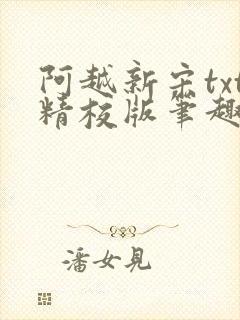 阿越新宋txt
精校版笔趣
潘女見